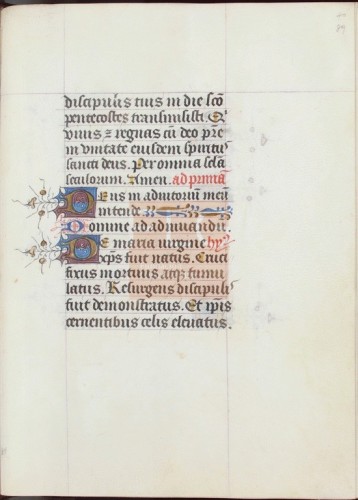 discipulis tuis in die sco
pentecostes transmisisti. Q
vivis ⁊ regnas cū deo pre
in unitate eiusdem spiritu
sancti deus. Per omnia scla
seculorum. Amen. ad primā
Deus in adiutorium meū
intende
Domine ad adiuvandū.
De maria virgine hy
ceps fuit natus. Cruci
fixus mortuus atqz tumu
latus. Resurgens discipuli
fuit demonstratus. Et ipis
cernentibus celis elevatus.